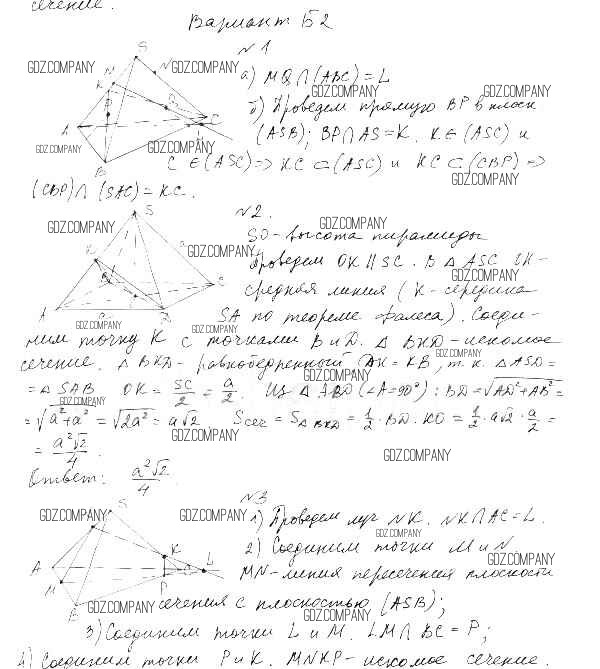 сечение.
Вариант Б2
N1
а) MQ ∩ (ABC) = L
б) Проведем прямую BP в плоск
(ASB); BP∩AS=K. K∈(ASC) и
C ∈(ASC)=> KC ⊂(ASC) и KC ⊂(CBP) =>
(CBP)∩(SAC)=KC.
N2.
SO-высота пирамиды
Проведем OK || SC. В △ ASC OK-
средняя линия (K-середина
SA по теореме Фалеса). Соеди-
ним точку K с точками B и D. △ BKD-искомое
сечение. △ BKD- равнобедренный DK=KB, т.к. △ASD=
=△ SAB OK = SC/2 = a/2. Из △ ABD (∠A=90°): BD=√AD²+AB²=
=√a²+a² = √2a² = a√2 Sсеч = S△BKD = 1/2 · BD · KO = 1/2 · a√2 · a/2 =
= a²√2/4
Ответ: a²√2/4.
N3
1) Проведем луч NK. NK∩AC=L.
2) Соединим точки M и N
MN-линия пересечения плоскости
сечения с плоскостью (ASB);
3) Соединим точки L и M. LM∩BC=P;
4) Соединим точки P и K. MNKP-искомое сечение.
GDZ.COMPANY